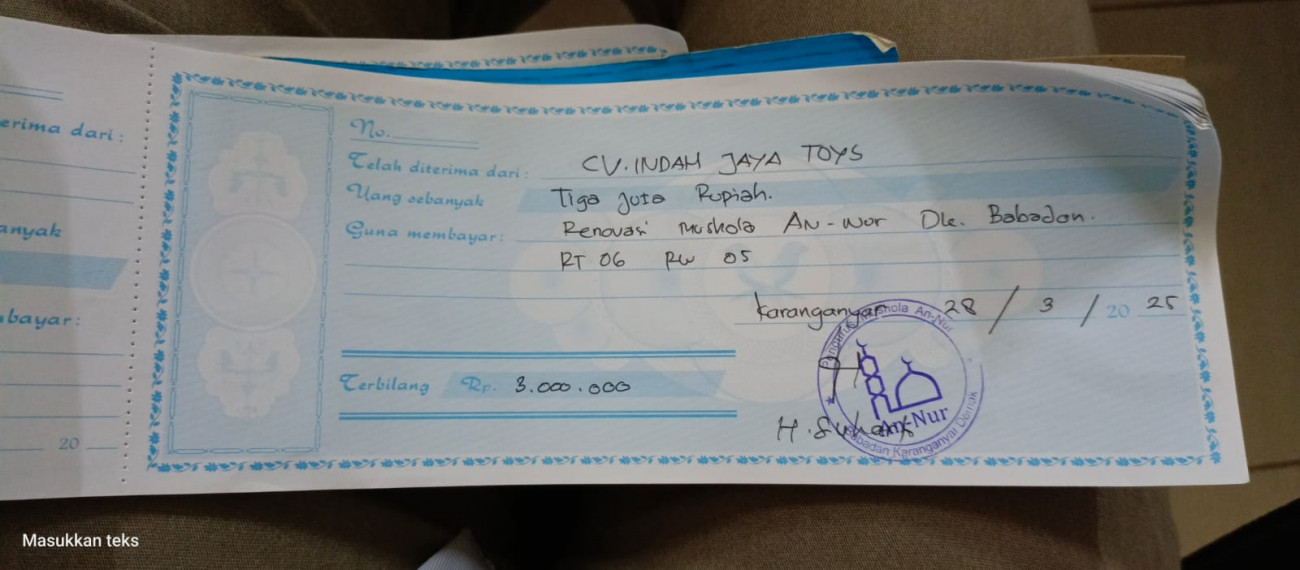 erima dari:
anyak
bayar:
20
No.
Telah diterima dari: CV. INDAH JAYA TOYS
Uang sebanyak Tiga Juta Rupiah.
Guna membayar: Renovasi Mushola An-Nur Dk. Babadan.
RT 06 RW 05
Karanganyar 28 / 3 / 20 25
Terbilang Rp. 3.000.000
Mushola An-Nur
An-Nur
Babadan Karanganyar Demak
H.
Masukkan teks